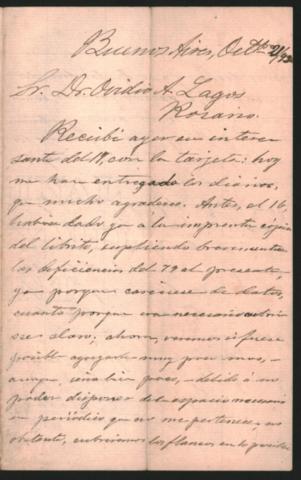 Buenos Aires, Octbre 21/92
Sr. Dr. Ovidio A. Lagos
Rosario.
Recibí ayer su intere
sante del 19, con la tarjeta: hoy
me han entregado los diarios,
que mucho agradezco. Antes, el 16
había dado ya a la imprenta copia
del librito, supliendo brevemente
las deficiencias del 79 al presente,
ya porque careciese de datos,
cuanto porque era necesario
ser claro; ahora, veremos si fuese
posible agregarle muy poco mas,
aunque, será bien poco, debido á no
poder disponer del espacio necesario
en periódico que no me pertenece; no
obstante, cubriremos los flancos en lo posible